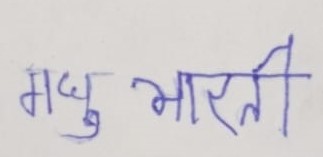 मधु भारती